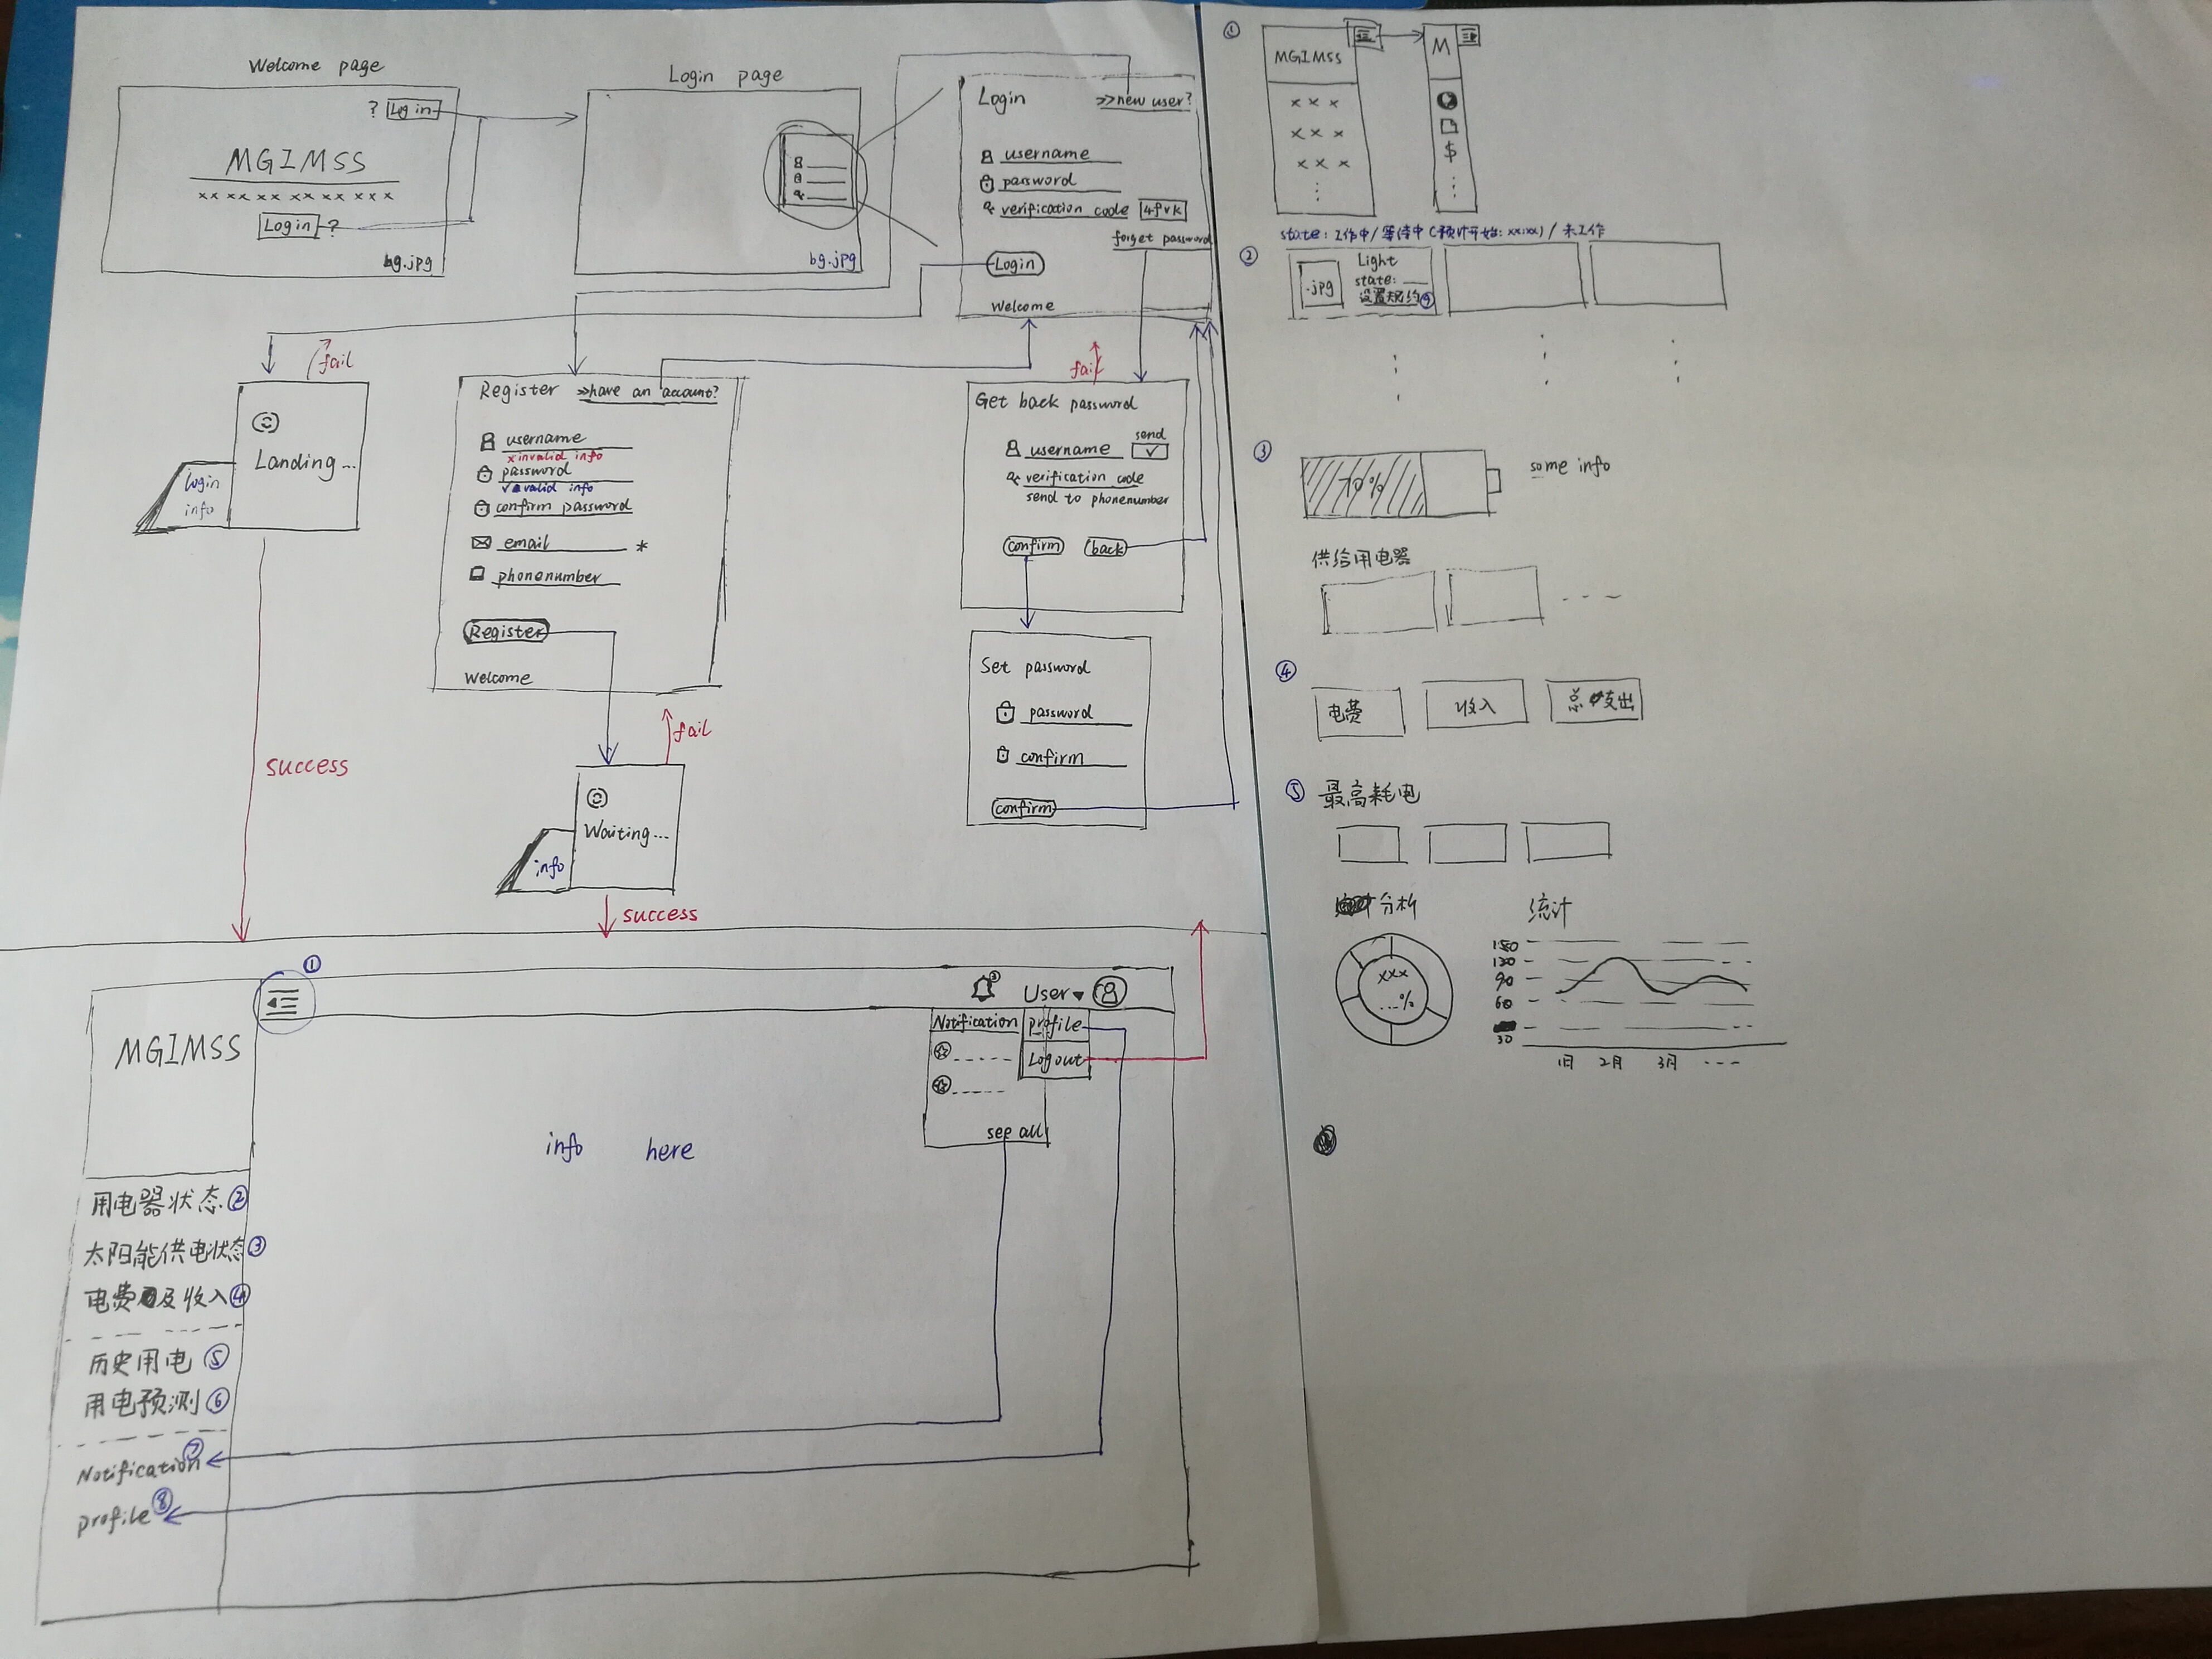 Welcome page
? Log in
MGIMSS
xx xx xx xx xx xx
Login ?
bg.jpg
Login page
bg.jpg
Login >>new user?
username
password
verification code 4fvk
forget password
Login
Welcome
fail
Landing...
login
info
success
Register >>have an account?
username
x invalid info
password
valid info
confirm password
email *
phonenumber
Register
Welcome
fail
Waiting...
info
success
fail
Get back password
send
username
verification code
send to phonenumber
confirm back
Set password
password
confirm
confirm
①
MGIMSS
User
3
Notification
see all
profile
Logout
info here
用电器状态②
太阳能供电状态③
电费及收入④
历史用电⑤
用电预测⑥
Notification⑦
profile⑧
①
MGIMSS
x x x
x x x
x x x
M
$
state: 工作中/等待中(预计开始: xx:xx)/未工作
②
.jpg
Light
state:
设置规约⑨
③
70%
some info
供给用电器
④
电费 收入 总支出
⑤ 最高耗电
分析 统计
xxx
...%
150
120
90
60
30
1月 2月 3月 ---